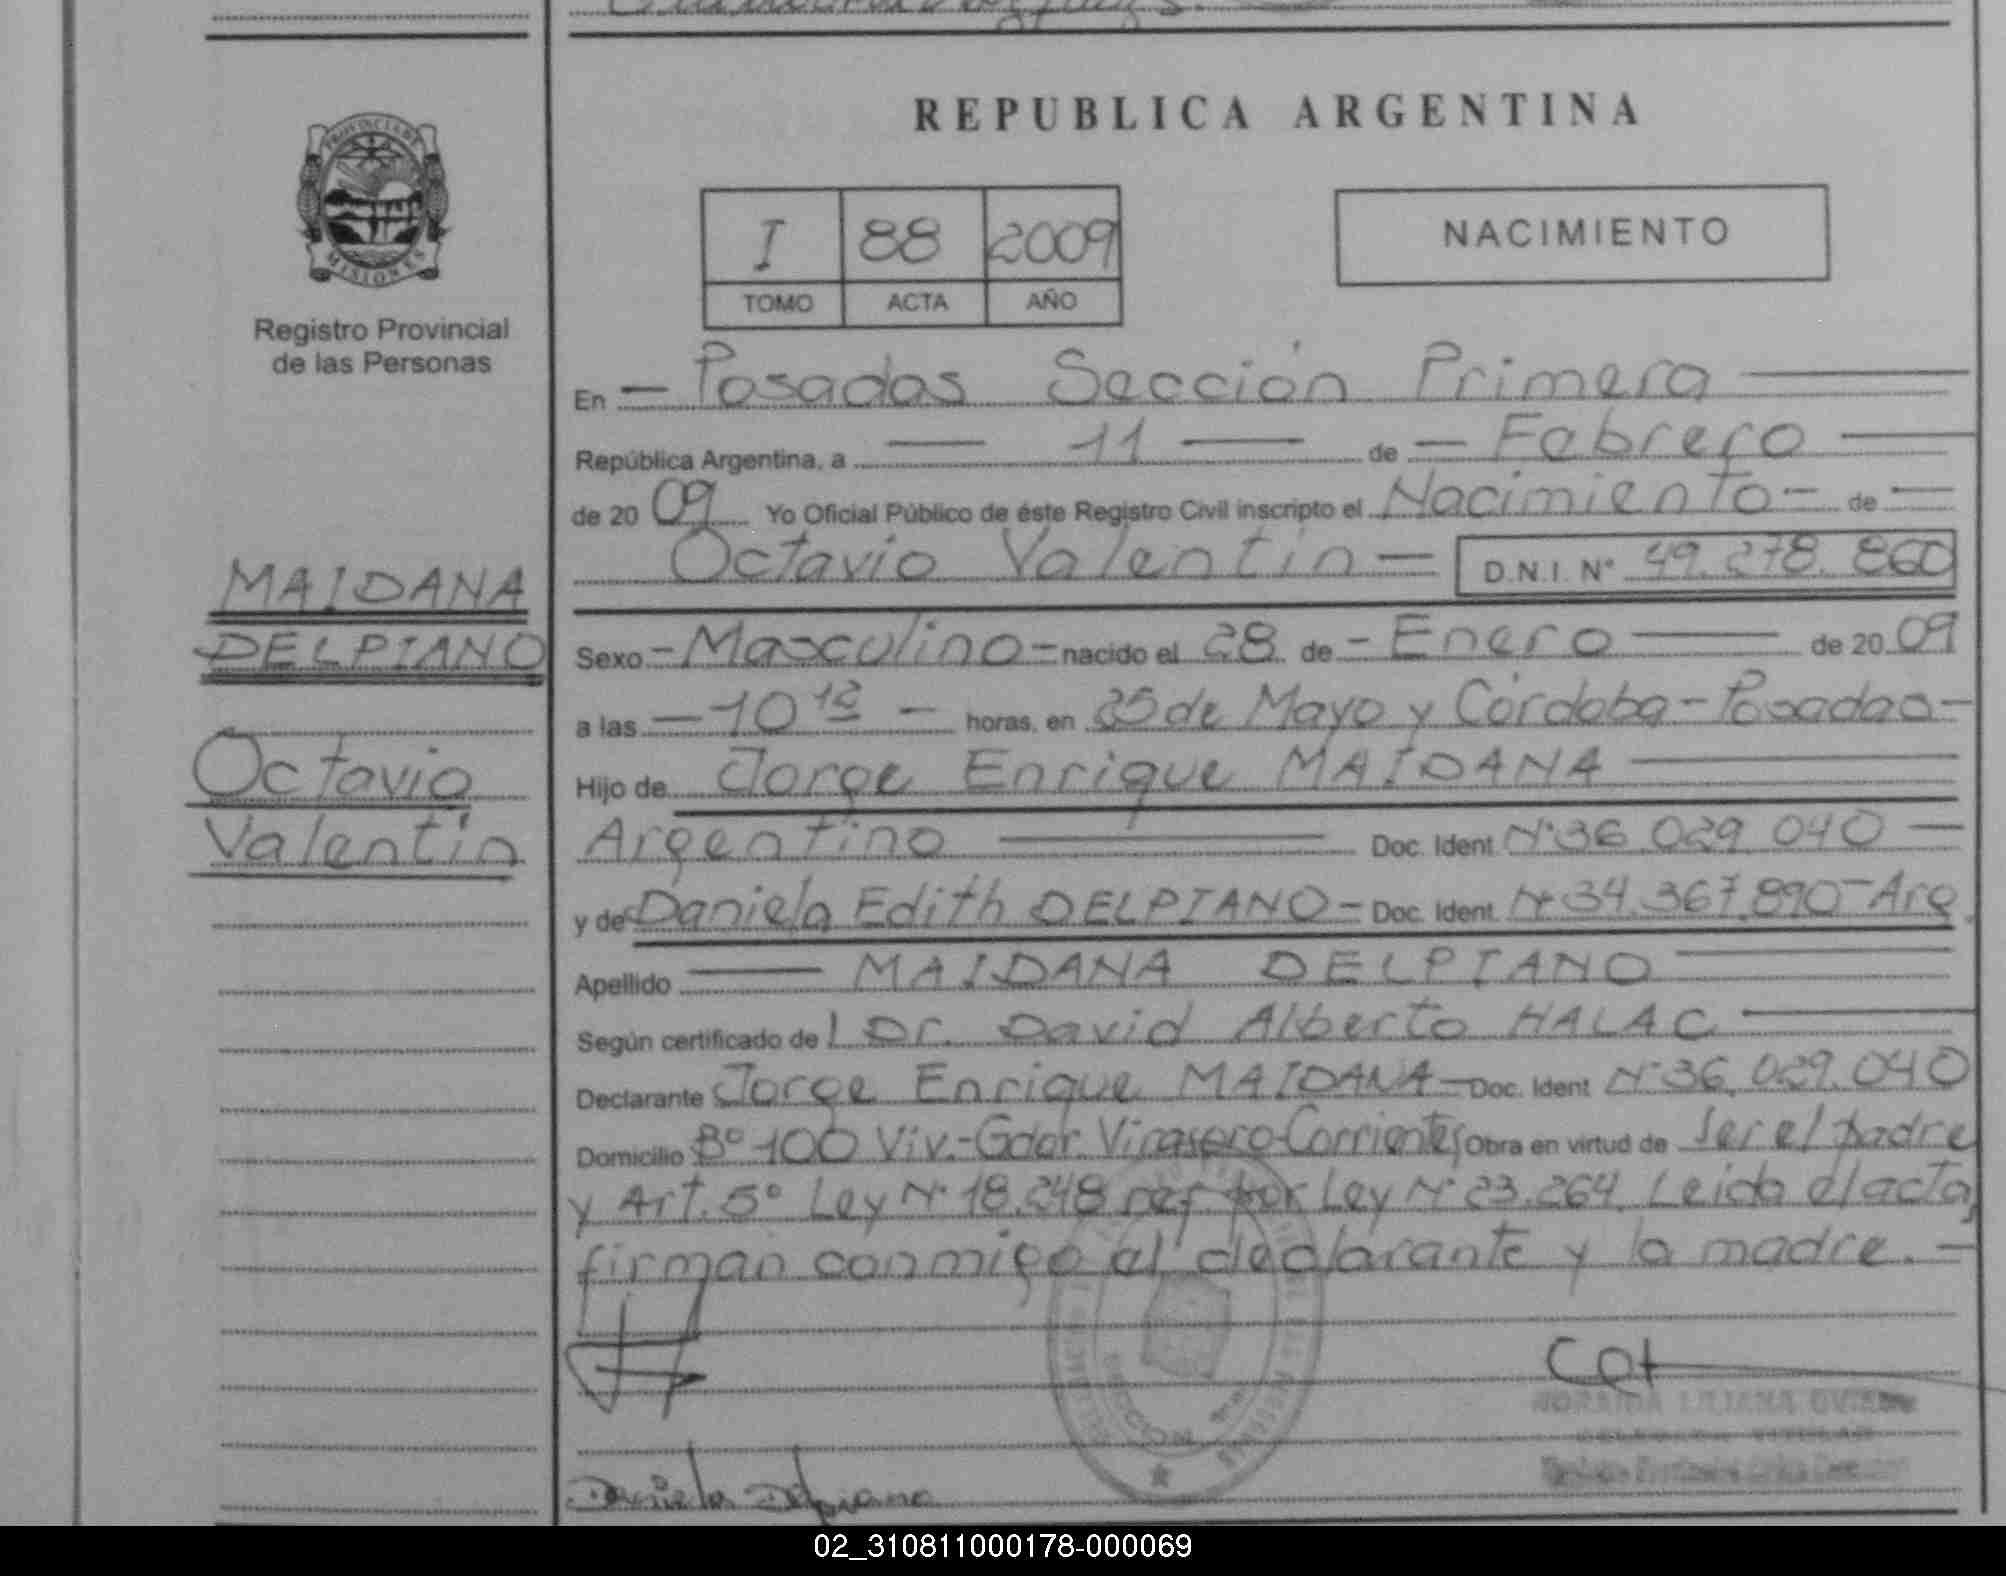 REPUBLICA ARGENTINA
PROVINCIA DE
MISIONES
Registro Provincial
de las Personas
I 88 2009
TOMO ACTA AÑO
NACIMIENTO
En — Posadas Sección Primera —
República Argentina, a — 11 — de — Febrero —
de 20 09 Yo Oficial Público de éste Registro Civil inscripto el Nacimiento — de —
Octavio Valentin — D.N.I. Nº 49.278.860
MAIDANA
DELPIANO
Octavio
Valentin
Sexo - Masculino - nacido el 28 de - Enero — de 20 09
a las — 10 12 — horas, en 25 de Mayo y Córdoba - Posadas -
Hijo de Jorge Enrique MAIDANA —
Argentino — Doc. Ident. Nº 36.029.040 —
y de Daniela Edith DELPIANO - Doc. Ident. Nº 34.367.890 - Arg.
Apellido — MAIDANA DELPIANO —
Según certificado de l Dr. David Alberto HALAC —
Declarante Jorge Enrique MAIDANA — Doc. Ident Nº 36.029.040
Domicilio Bº 100 Viv.- Gdor. Virasoro - Corrientes Obra en virtud de ser el padre
y Art. 5º Ley Nº 18.248 ref. por Ley Nº 23.264. Leida el acta,
firman conmigo el declarante y la madre. —
Daniela Delpiano
LILIANA
TITULAR
02_310811000178-000069